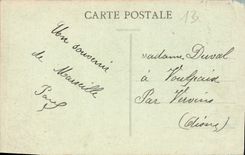 CARTE POSTALE
13
Un souvenir
de Marseille
Paul
Madame Duval
à Voulpaix
Par Vervins
(Aisne)